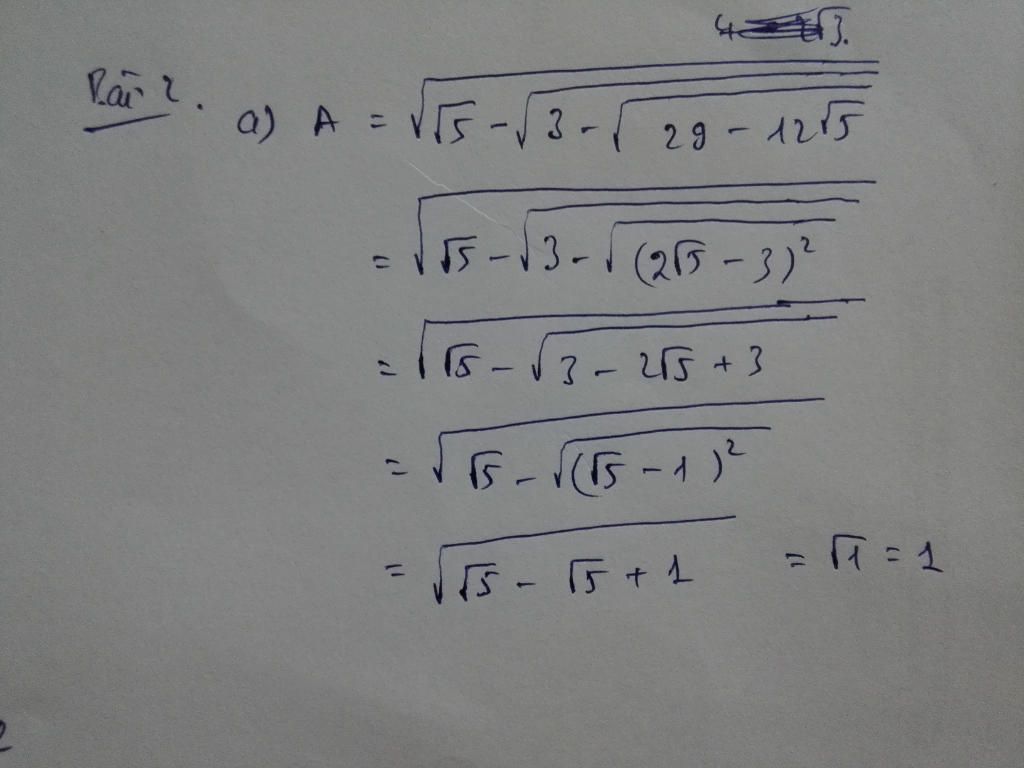 4 √3.
Bài 2. a) A = √(√5 - √(3 - √(29 - 12√5)))
= √(√5 - √(3 - √((2√5 - 3)²)))
= √(√5 - √(3 - 2√5 + 3))
= √(√5 - √((√5 - 1)²))
= √(√5 - √5 + 1) = √1 = 1